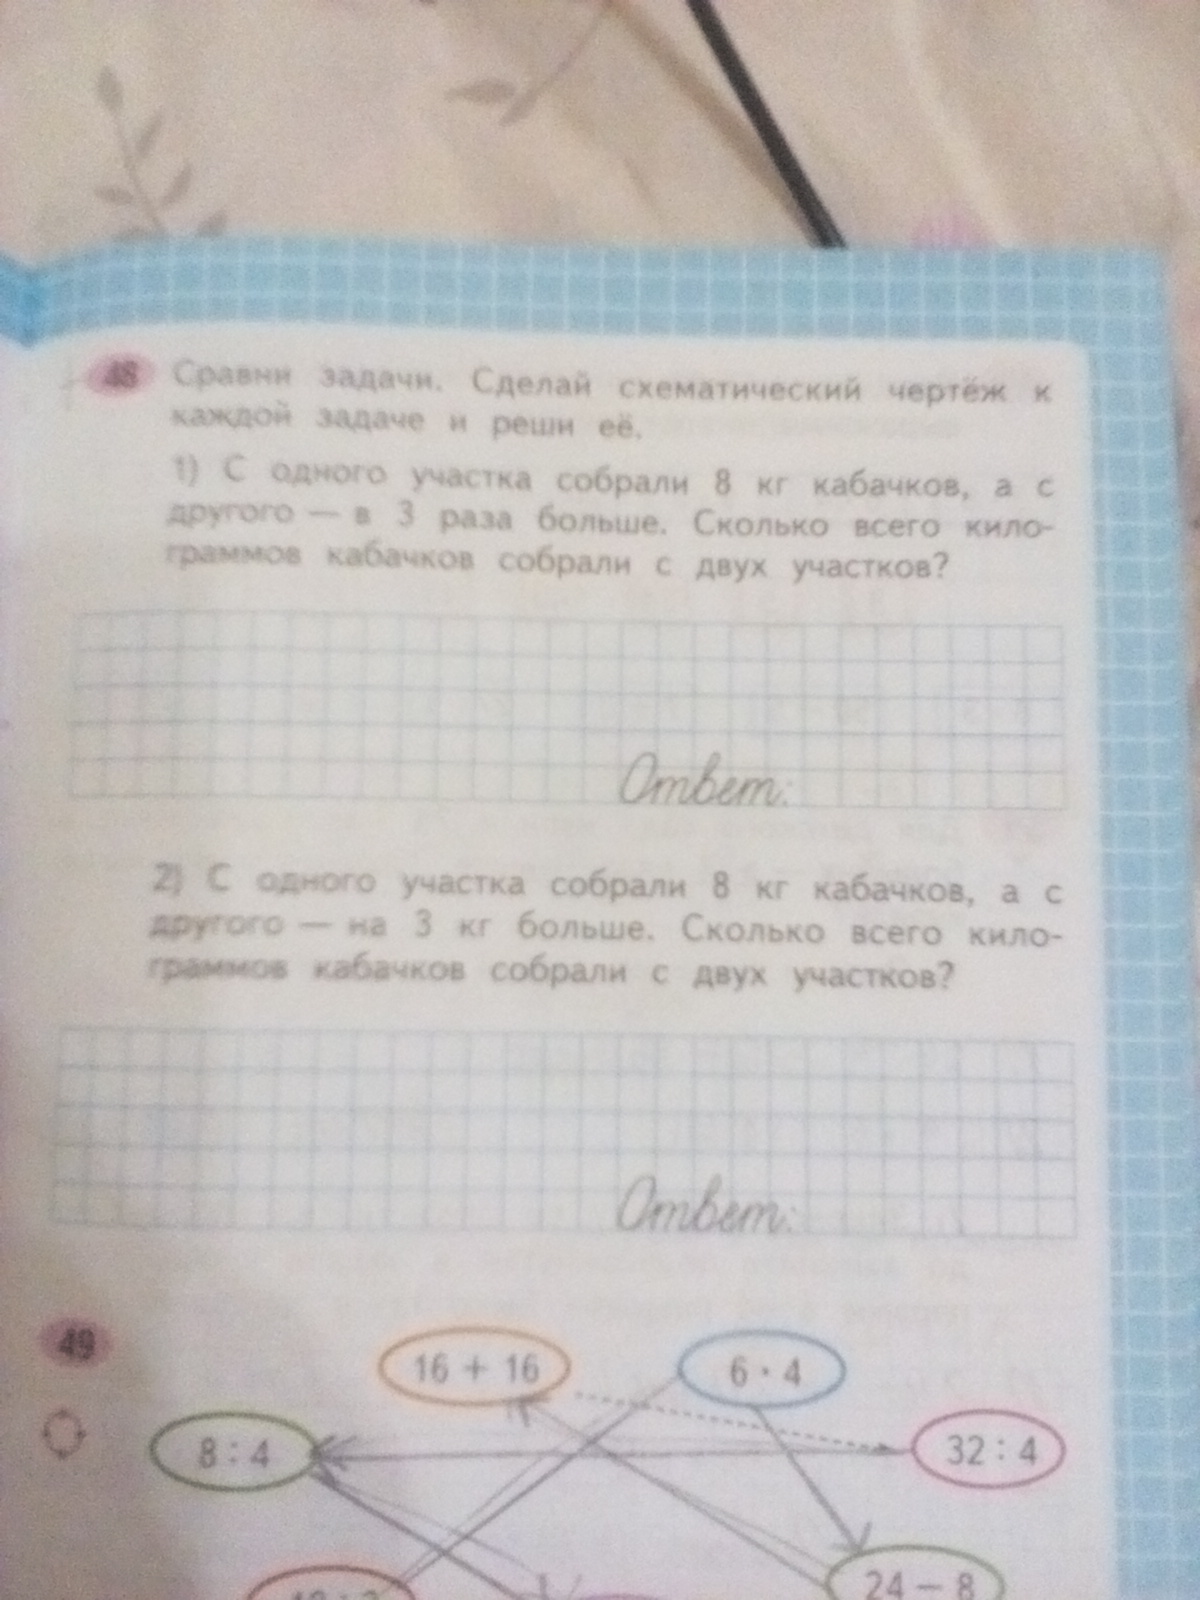 48 Сравни задачи. Сделай схематический чертёж к
каждой задаче и реши её.
1) С одного участка собрали 8 кг кабачков, а с
другого — в 3 раза больше. Сколько всего кило-
граммов кабачков собрали с двух участков?
Ответ:
2) С одного участка собрали 8 кг кабачков, а с
другого — на 3 кг больше. Сколько всего кило-
граммов кабачков собрали с двух участков?
Ответ:
49
16 + 16
6 · 4
8 : 4
32 : 4
24 − 8